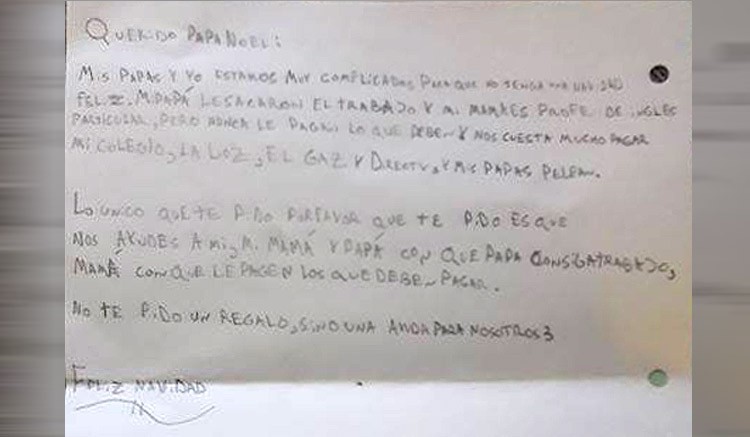 QUERIDO PAPA NOEL:
MIS PAPAS Y YO ESTAMOS MUY COMPLICADOS PARA QUE NO TENGA UNA NAVIDAD
FELIZ. MI PAPÁ LE SACARON EL TRABAJO Y MI MAMA ES PROFE DE INGLES
PARTICULAR, PERO NUNCA LE PAGAN LO QUE DEBEN Y NOS CUESTA MUCHO PAGAR
MI COLEGIO, LA LUZ, EL GAZ Y DIRECTV, Y MIS PAPAS PELEAN.
LO UNICO QUE TE PIDO PORFAVOR QUE TE PIDO ES QUE
NOS AYUDES A MI, MI MAMÁ Y PAPÁ CON QUE PAPA CONSIGA TRABAJO,
MAMÁ CON QUE LE PAGEN LOS QUE DEBEN PAGAR.
NO TE PIDO UN REGALO, SINO UNA AYUDA PARA NOSOTROS 3
FELIZ NAVIDAD